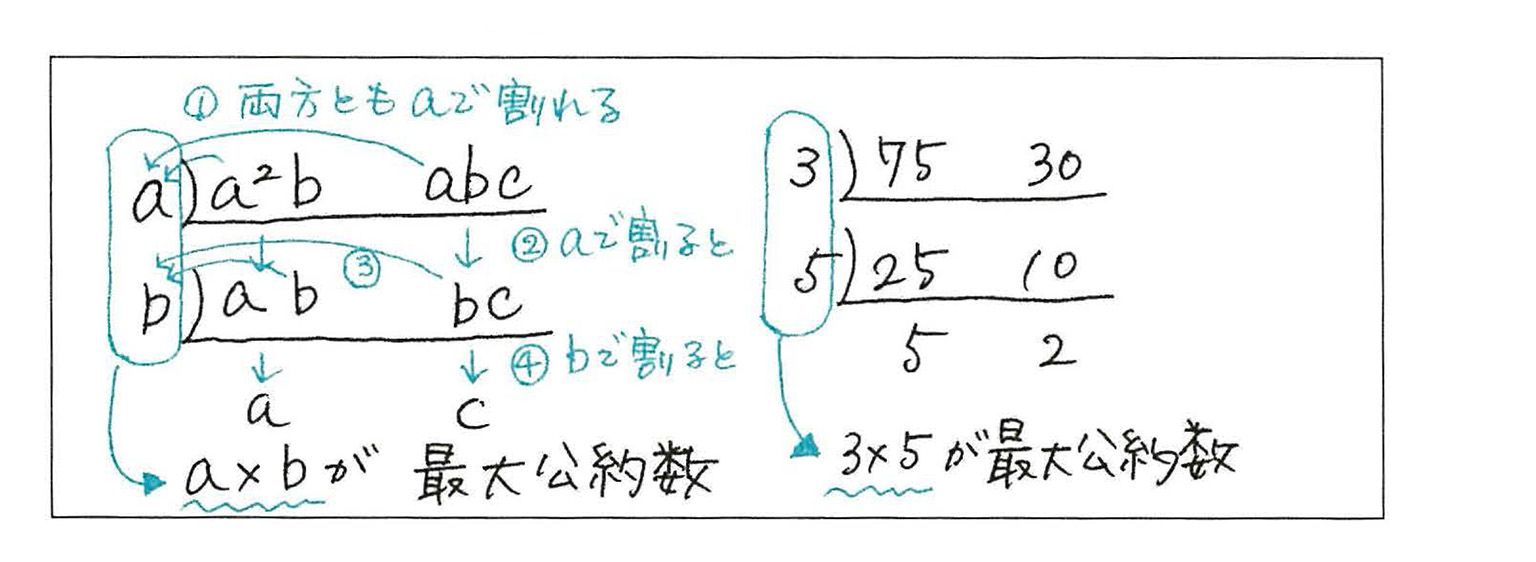 ① 両方ともaで割れる
a)a²b abc
② aで割ると
③
b)ab bc
④ bで割ると
a c
a×bが 最大公約数
3)75 30
5)25 10
5 2
3×5が最大公約数